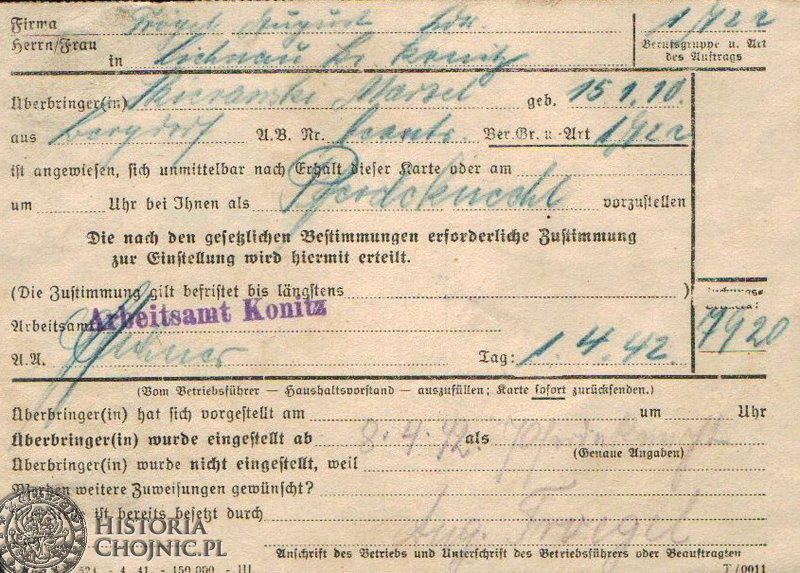 Firma August 1922
Herrn/Frau
in Lichnau Kr. Konitz
Berufsgruppe u. Art
des Auftrags
Überbringer(in) Marzel geb. 15.1.10.
aus A.B. Nr. Ber.Gr. u. Art 1922
ist angewiesen, sich unmittelbar nach Erhalt dieser Karte oder am
um Uhr bei Ihnen als Pferdeknecht vorzustellen
Die nach den gesetzlichen Bestimmungen erforderliche Zustimmung
zur Einstellung wird hiermit erteilt.
(Die Zustimmung gilt befristet bis längstens )
Arbeitsamt
Arbeitsamt Konitz
7920
A.A. Tag: 1.4.42.
(Vom Betriebsführer — Haushaltsvorstand — auszufüllen; Karte sofort zurücksenden.)
Überbringer(in) hat sich vorgestellt am um Uhr
Überbringer(in) wurde eingestellt ab 8.4.42. als Pferdeknecht
(Genaue Angaben)
Überbringer(in) wurde nicht eingestellt, weil
Werden weitere Zuweisungen gewünscht?
ist bereits besetzt durch
Aug. Troegel
HISTORIA
CHOJNIC.PL
Anschrift des Betriebs und Unterschrift des Betriebsführers oder Beauftragten
4. 41. - 150 000. - III. T/0011